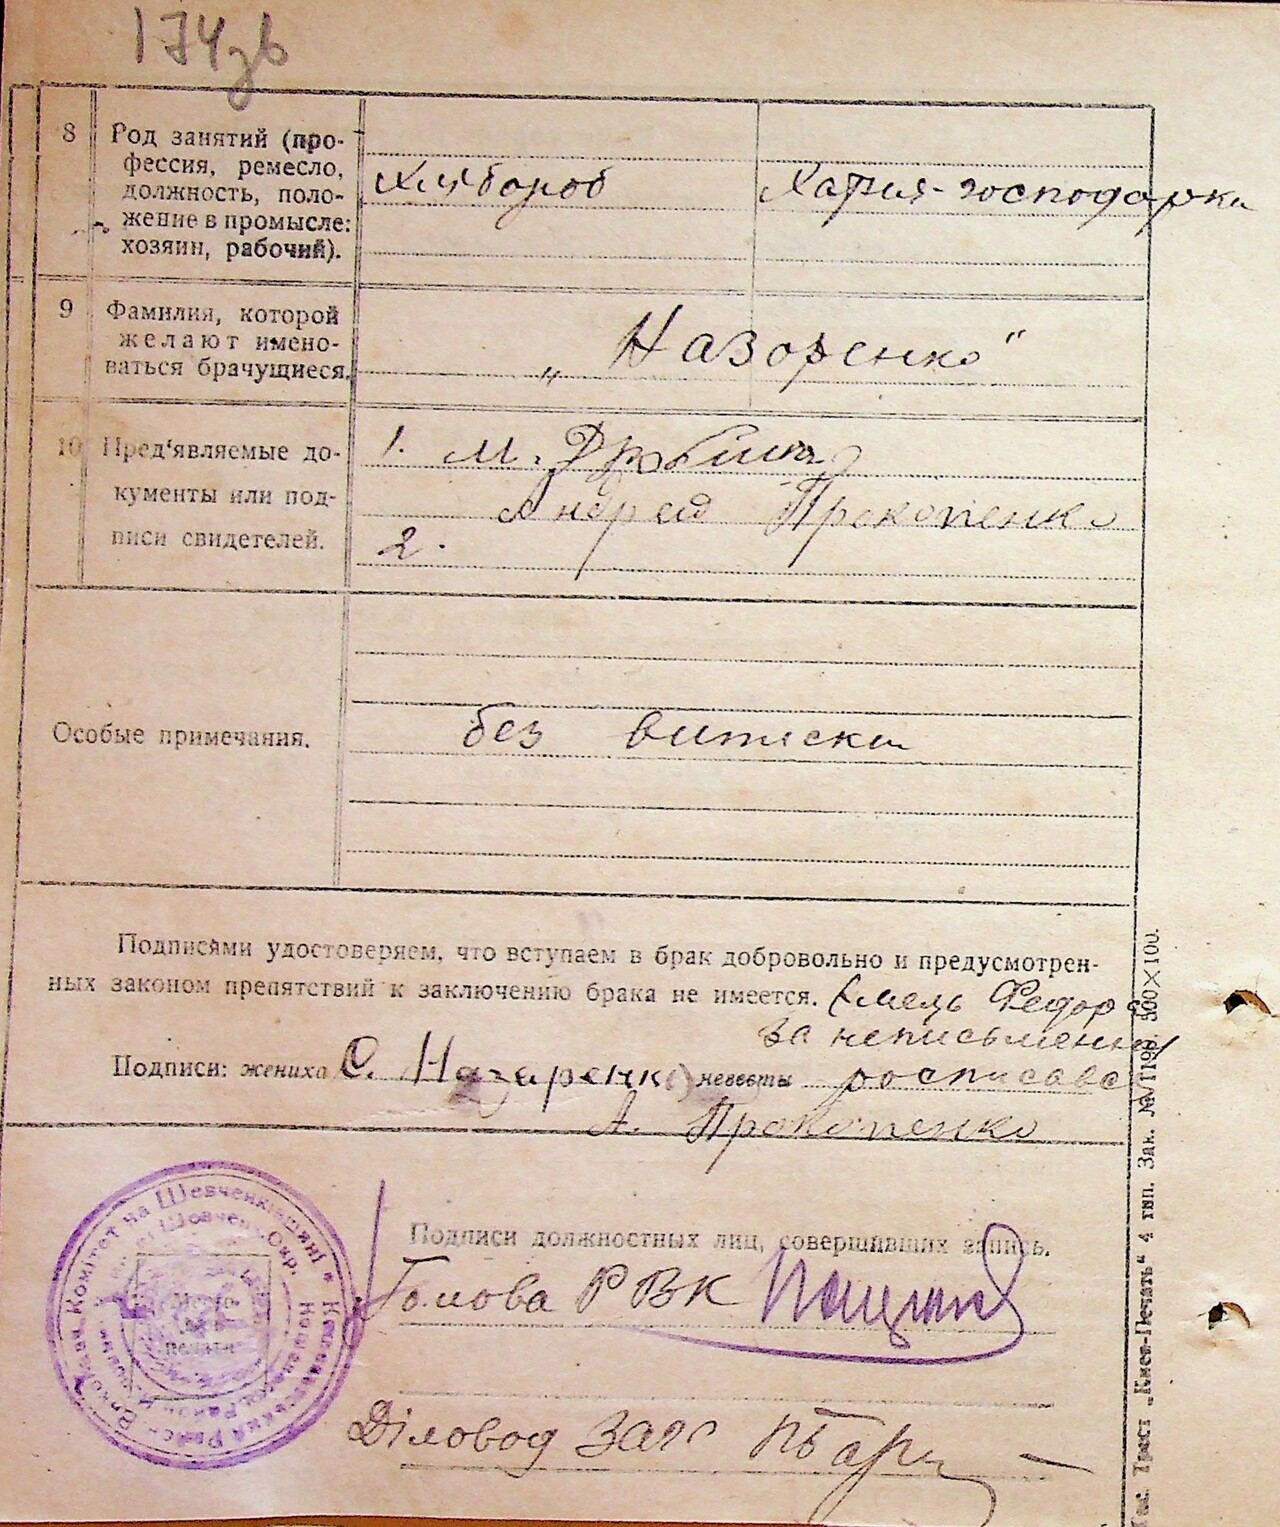 174зв
8 Род занятий (про-
фессия, ремесло,
должность, поло-
жение в промысле:
хозяин, рабочий).
Хлібороб
Хатня-господарка
9 Фамилия, которой
желают имено-
ваться брачущиеся.
„Назоренко“
10 Пред'являемые до-
кументы или под-
писи свидетелей.
1. М.
Андрей Прокопенко
2.
Особые примечания.
без виписки
Подписями удостоверяем, что вступаем в брак добровольно и предусмотрен-
ных законом препятствий к заключению брака не имеется. Федор
за неписьменну
Подписи: жениха С. Назаренко невесты росписавс
А. Прокопенко
Подписи должностных лиц, совершивших запись.
Голова РВК
Діловод Загс
Трест „Киев-Печать“ 4 тип. Зак. № 500×100.
Комітет на Шевченківщині